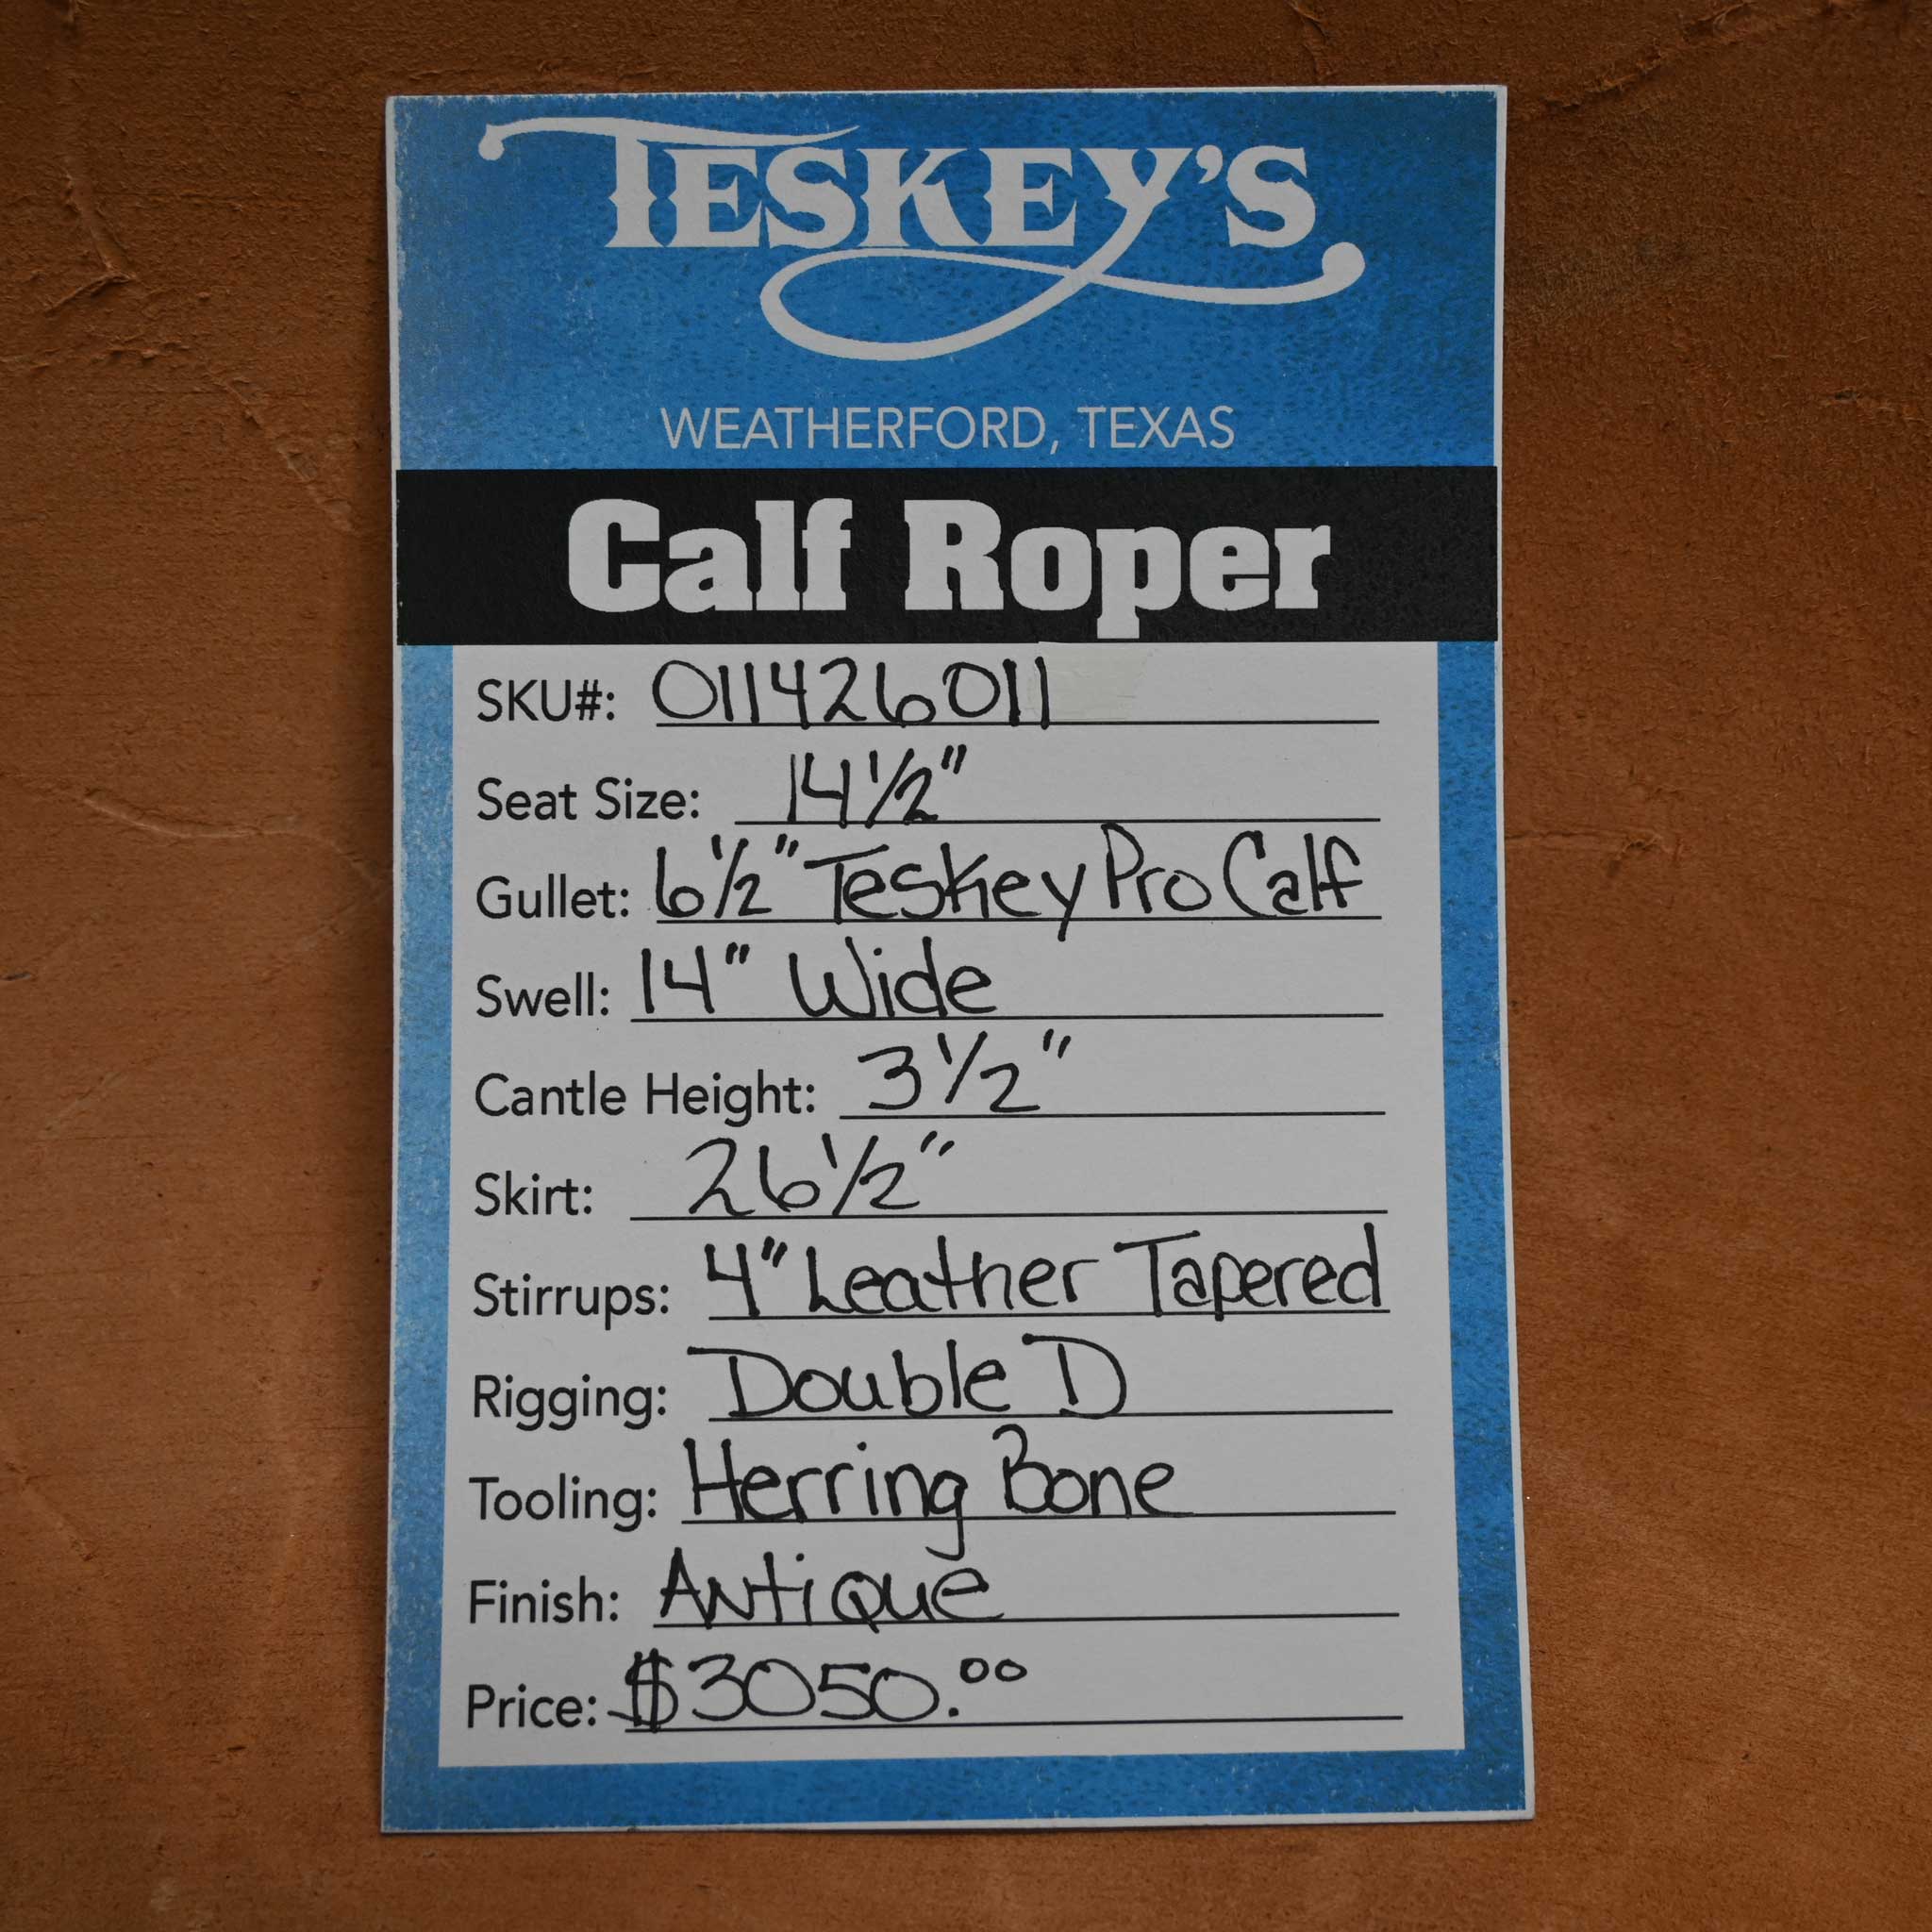 TESKEY'S
WEATHERFORD, TEXAS
Calf Roper
SKU#: 011426011
Seat Size: 14 1/2"
Gullet: 6 1/2" Teskey Pro Calf
Swell: 14" Wide
Cantle Height: 3 1/2"
Skirt: 26 1/2"
Stirrups: 4" Leather Tapered
Rigging: Double D
Tooling: Herring Bone
Finish: Antique
Price: $3050.00